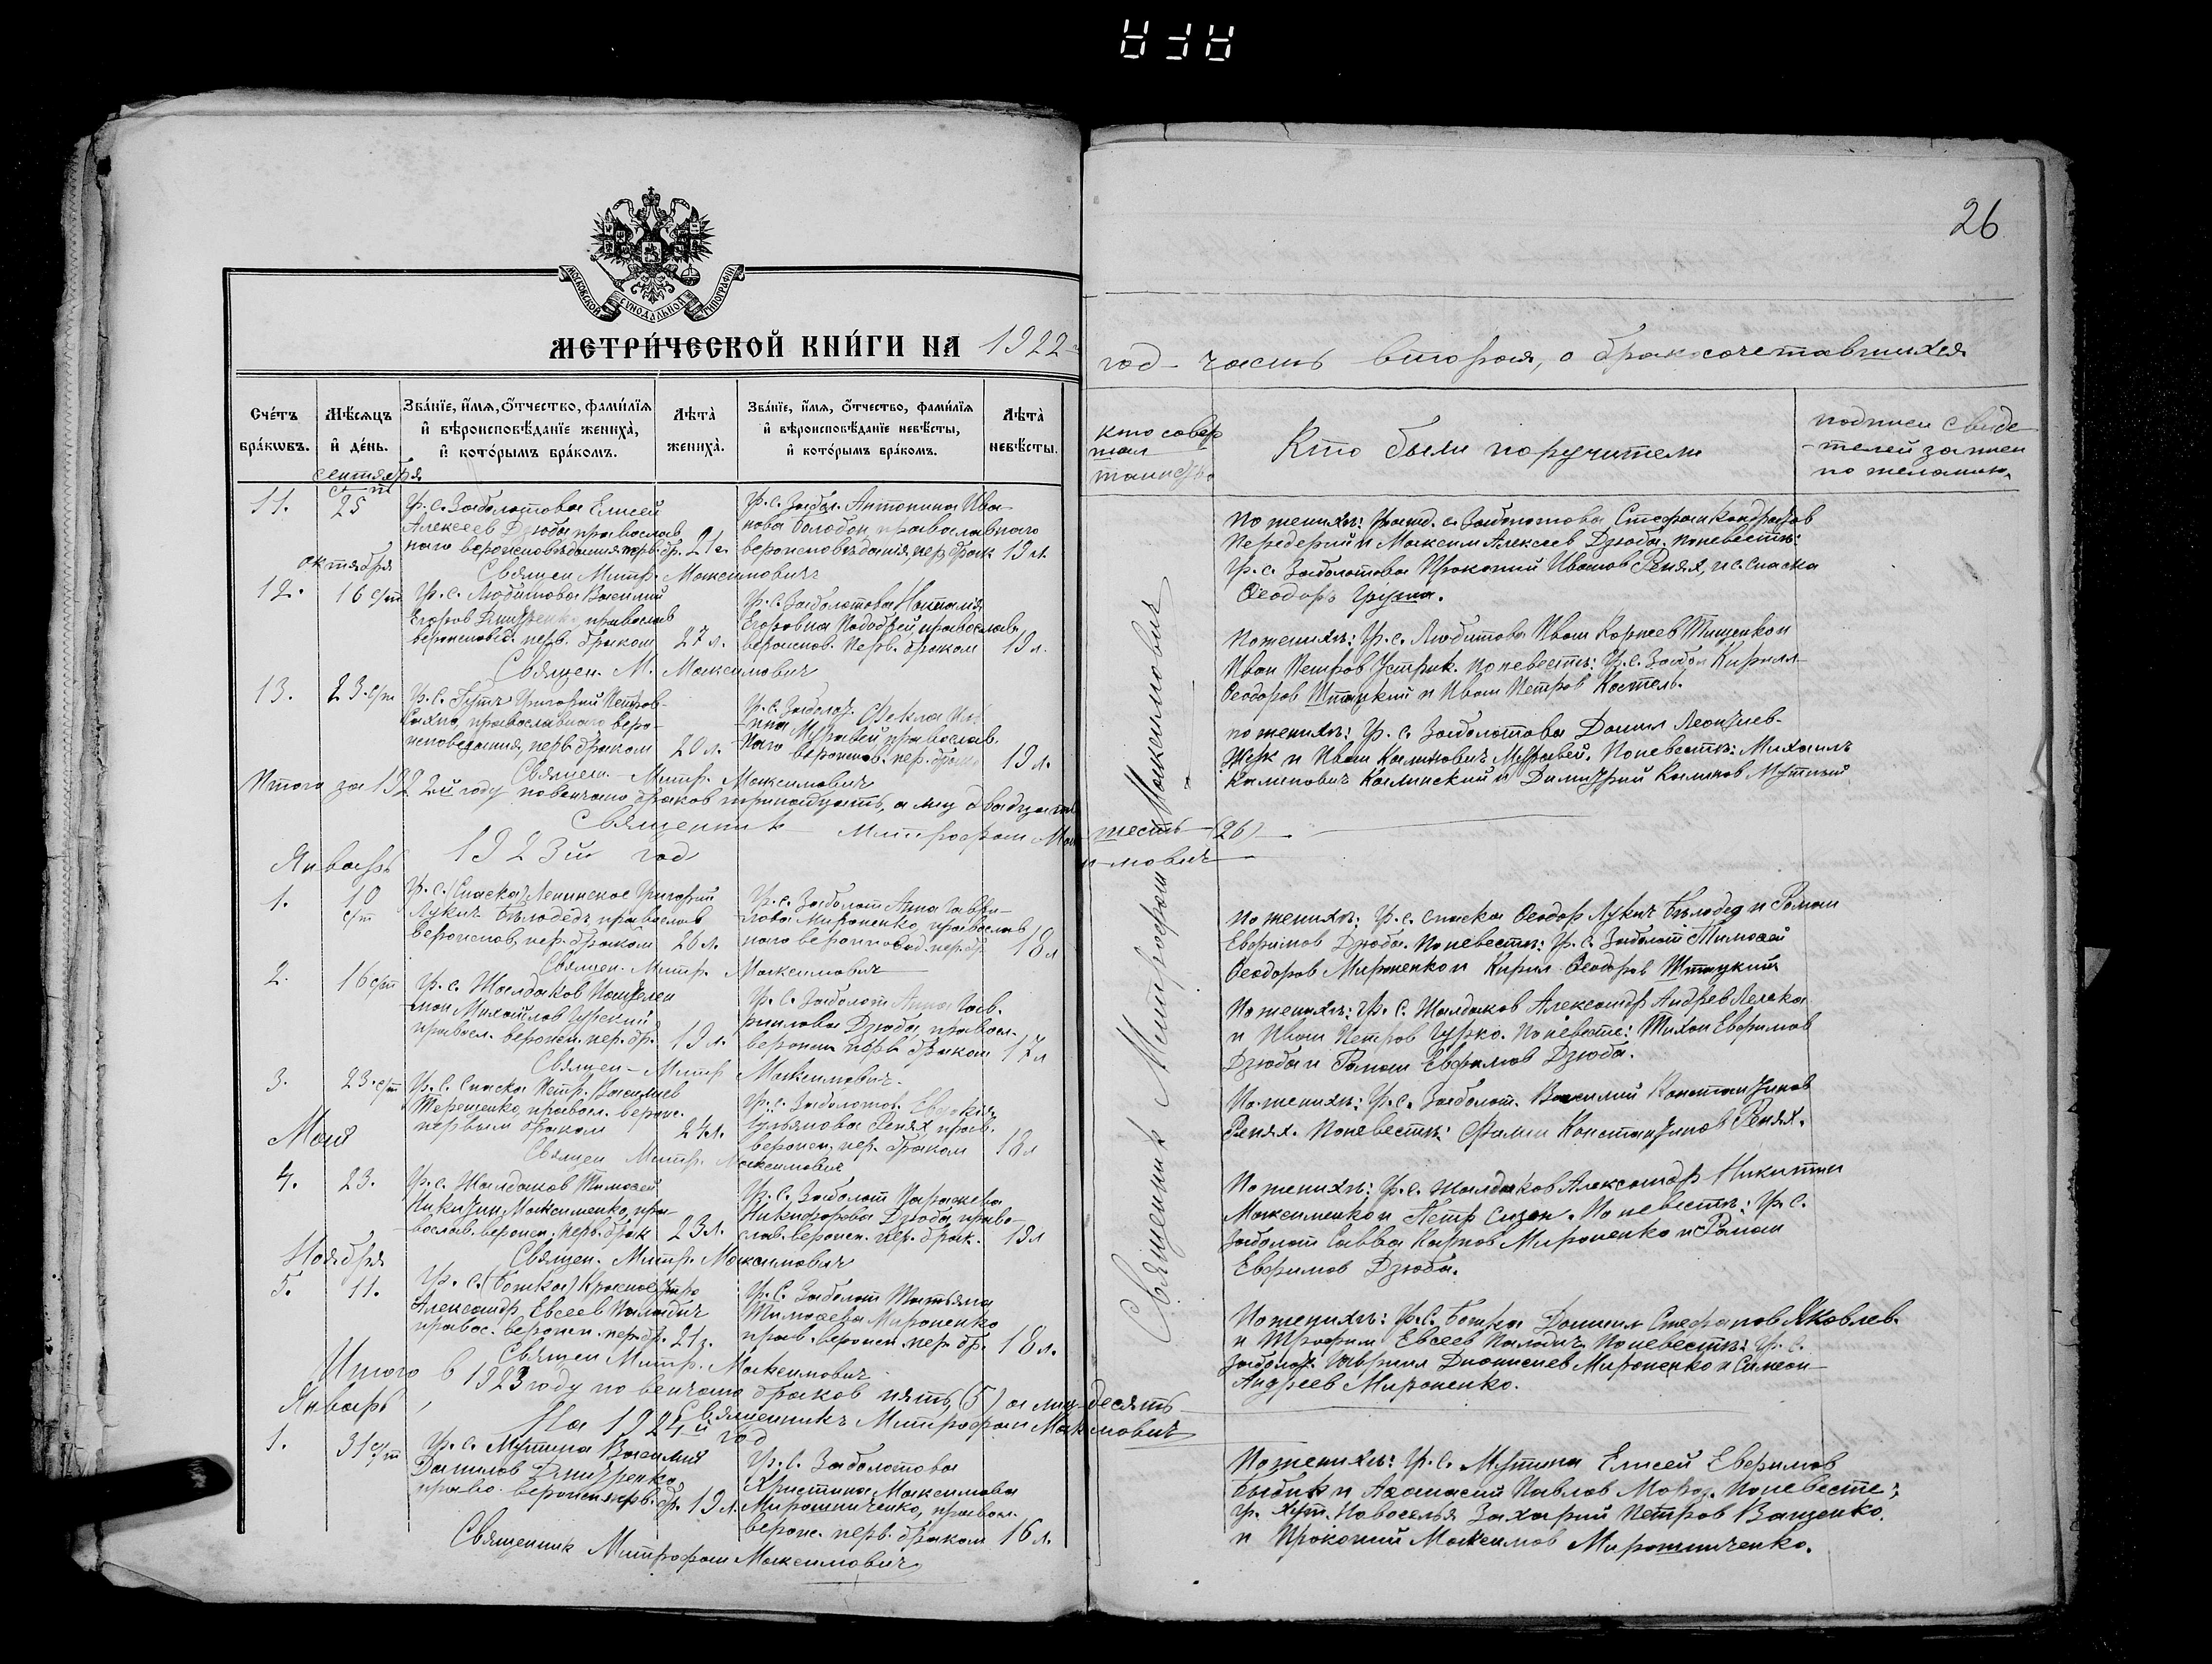 26
МОСКОВСКОЙ СѴНОДАЛЬНОЙ ТИПОГРАФІИ
МЕТРИ́ЧЕСКОЙ КНИ́ГИ НА 1922
год часть вторая, о бракосочетавшихся
Сче́тъ бра́кѡвъ.
Мѣ́сѧцъ и҆ де́нь.
Зва́нїе, и҆́мѧ, ѻ҆́тчество, фами́лїѧ
и҆ вѣроисповѣ́данїе жениха̀,
и҆ кото́рымъ бра́комъ.
Лѣ́та̀ жениха̀.
Зва́нїе, и҆́мѧ, ѻ҆́тчество, фами́лїѧ
и҆ вѣроисповѣ́данїе невѣ́сты,
и҆ кото́рымъ бра́комъ.
Лѣ́та̀ невѣ́сты.
кто совер
шал
таинств.
Кто были поручители
подписи свиде
-телей записи
по желанию.
сентября
11.
25
Гр. с. Заболотова Елисей
Алексеев Дзюба православ
наго вероисповѣдания перв. бр.
21 г.
Гр. с. Забол. Антонина Ива-
нова Болобан, православнаго
вероисповѣданiя, пер. браком
19 л.
Священ. Митр. Максимович
По женихѣ: гражд. с. Заболотова Стефан Кондратов
Передерий и Максим Алексеев Дзюба. по невестѣ:
Гр. с. Заболотова Прокопий Иванов Репях, и с. Спаска
Феодоръ Груша.
октября
12.
16 с/т
Гр. с. Любитова Василий
Егоров Дмитренко, православ
вероисповед. перв. браком
27 л.
Гр. с. Заболотова Наталiя
Егоровна православ.
вероиспов. перв. браком
19 л.
Священ. М. Максимович
По женихѣ: Гр. с. Любитова Иван Корнеев Тищенко и
Иван Петров Устрик. по невестѣ: Гр. с. Забол Кирилл
Феодоров Штацкий и Иван Петров Костель.
13.
23 с/т
Гр. с. Гутъ Григорий Петров
Сахно, православнаго веро-
исповедания, перв. браком
20 л.
Гр. с. Заболот. Фекла
Муравей православ.
наго вероиспов. пер. брак.
19 л.
Священ. Митр. Максимович
по женихѣ: Гр. с. Заболотова Данил Леонтиев
Жук и Иван Калинович Муравей. По невестѣ: Михаилъ
Калинович Калинский и Димитрий Калинов Мутный
Итого за 1922й году повенчано браков тринадцать, а лиц двадцать
шесть (26)
Священник Митрофан Мак
симович
1923й год
Январь
1.
10
с/т
Гр. с. (Спаска) Ленинское Григорий
Лукич Бѣлодед православ
вероиспов, пер. браком
26 л.
Гр. с. Заболот Анна Гаври-
лова Мироненко, православ
наго вероисповед. пер. бр.
18 л
Священ. Митр. Максимович
По женихѣ: Гр. с. Спаска Феодор Лукич Бѣлодед и Роман
Евфимов Дзюба. По невестѣ: Гр. с. Заболот Тимофей
Феодоров Мироненко и Кирил Феодоров Штацкий
2.
16 с/т
Гр. с. Жалдаков Пантелей
мон Михайлов Гурский
правосл. вероисп. пер. бр.
19 л.
Гр. с. Заболот Анна Гав-
риилова Дзюба, правосл.
вероисп. перв. браком
17 л
Священ. Митр Максимович.
По женихѣ: Гр. с. Жалдаков Александр Андрев Лелека
и Иван Петров Гурко. По невесте: Тихон Евфимов
Дзюба и Роман Евфимов Дзюба.
3.
23 с/т
Гр. с. Спаска Петр. Васильев
Терещенко, правосл. вероис.
первым браком
24 л.
Гр. с. Заболотов. Евдокия
Репях прав.
вероисп. пер. браком
18 л
Священ Митр. Максимович
По женихѣ: Гр. с. Заболот. Василий Константинов
Репях. По невестѣ: Филип Константинов Репях.
Мая
4.
23.
Гр. с. Жалдаков Тимофей
Никитин Максименко, пра-
вослав. вероисп. перв. брак
23 л.
Гр. с. Заболот Параскева
Никифорова Дзюба, право-
слав. вероисп. пер. брак.
19 л
Священ. Митр. Максимович
По женихѣ: Гр. с. Жалдаков Александр Никитин
Максименко и Петр Сизон. По невестѣ: Гр. с.
Заболот Савва Карпов Мироненко и Роман
Евфимов Дзюба.
Ноября
5.
11.
Гр. с. (Ботка) Красное Утро
Александр Евсеев Паладич
правос. вероисп. пер. бр.
21 г.
Гр. с. Заболот Татьяна
Тимофеева Мироненко
прав. вероисп. пер. бр.
18 л.
Священ Митр. Максимович
По женихѣ: Гр. с. Ботка Даниил Стефанов Яковлев
и Трофим Евсеев Паладич. По невестѣ: Гр. с.
Заболот. Гавриил Дионисиев Мироненко и Симеон
Андреев Мироненко.
Итого в 1923 году по венчано браков пять (5) а лиц десять
Священникъ Митрофан Максимович
На 1924й год
Январь
1.
31 с/т
Гр. с. Мутина Василий
Данилов Дмитренко
право. вероисп. перв. бр.
19 л.
Гр. с. Заболотова
Христина Максимова
Мирошниченко, правосл.
вероис. перв. браком
16 л.
Священник Митрофан Максимович
По женихѣ: Гр. с. Мутина Елисей Евфимов
Бибик и Афанасий Павлов Мороз. По невесте:
гр. хут. Новоселья Захарий Петров Ващенко.
и Прокопий Максимов Мирошниченко.
Священник Митрофан Максимович